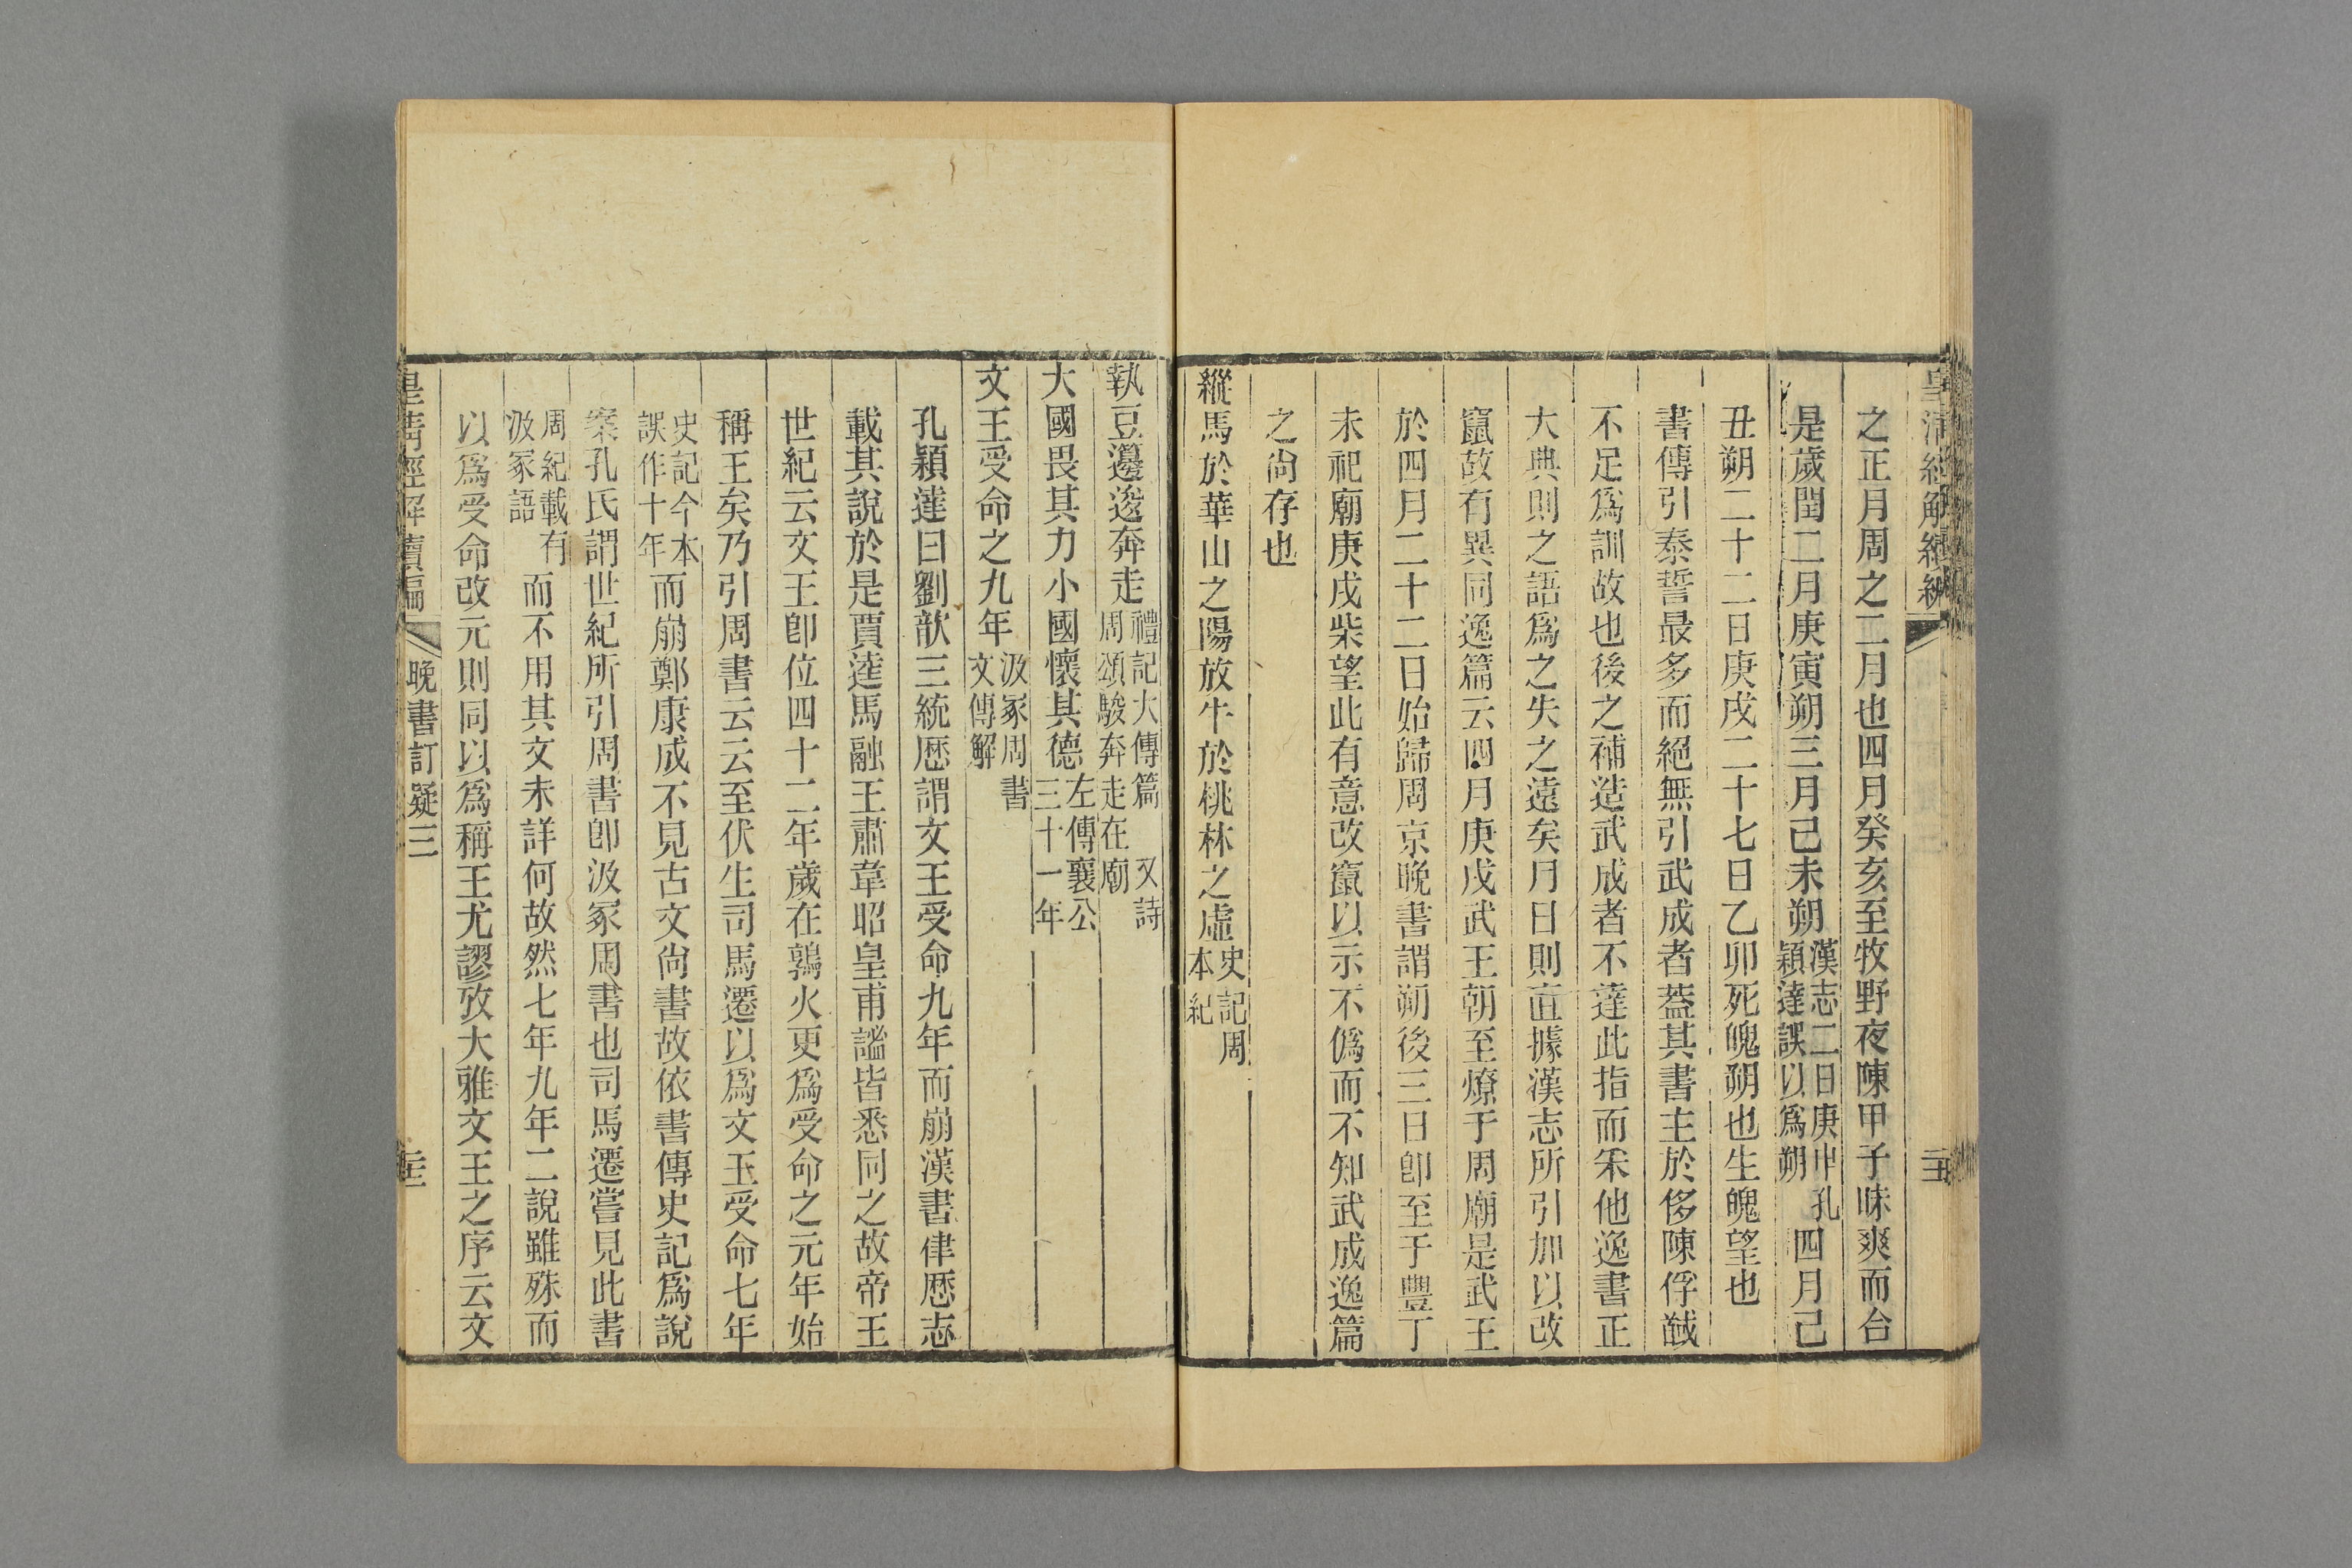 皇清經解續編
之正月周之二月也四月癸亥至牧野夜陳甲子昧爽而合
是歲閏二月庚寅朔三月己未朔漢志二日庚申孔穎達誤以爲朔四月己
丑朔二十二日庚戌二十七日乙卯死魄朔也生魄望也
書傳引泰誓最多而絕無引武成者葢其書主於侈陳俘馘
不足爲訓故也後之補造武成者不達此指而采他逸書正
大典則之語爲之失之遠矣月日則直據漢志所引加以改
竄故有異同逸篇云四月庚戌武王朝至燎于周廟是武王
於四月二十二日始歸周京晚書謂朔後三日卽至于豐丁
未祀廟庚戌柴望此有意改竄以示不僞而不知武成逸篇
之尙存也
縱馬於華山之陽放牛於桃林之虛史記周本紀
執豆籩逡奔走禮記大傳篇 又詩周頌駿奔走在廟
大國畏其力小國懷其德左傳襄公三十一年
文王受命之九年汲冢周書文傳解
孔穎達曰劉歆三統厯謂文王受命九年而崩漢書律厯志
載其說於是賈逵馬融王肅韋昭皇甫謐皆悉同之故帝王
世紀云文王卽位四十二年歲在鶉火更爲受命之元年始
稱王矣乃引周書云云至伏生司馬遷以爲文王受命七年
史記今本誤作十年而崩鄭康成不見古文尙書故依書傳史記爲說
案孔氏謂世紀所引周書卽汲冢周書也司馬遷嘗見此書
周紀載有汲冢語而不用其文未詳何故然七年九年二說雖殊而
以爲受命改元則同以爲稱王尤謬攷大雅文王之序云文
皇清經解續編
晚書訂疑三